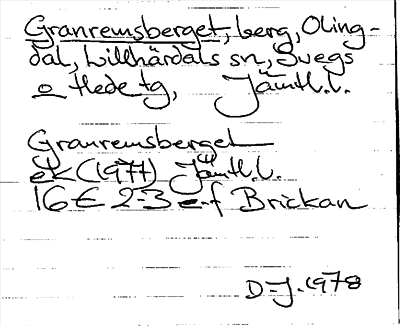 Granremsberget, berg, Oling-
dal, Lillhärdals sn, Svegs
o Hede tg, Jämtl.l.
Granremsberget
ek (1977) Jämtl.l.
16E 2-3 e-f Brickan
D-J. 1978